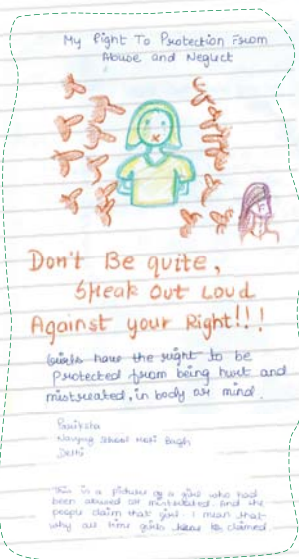 My Right To Protection From
Abuse and Neglect
Don't Be quite,
Speak Out Loud
Against your Right!!!
Girls have the right to be
Protected from being hurt and
mistreated, in body or mind.
Navyug School Moti Bagh
Delhi
This is a picture of a girl who had
been abused or mistreated. And the
people claim that girl. I mean that
why all time girls to be claimed.